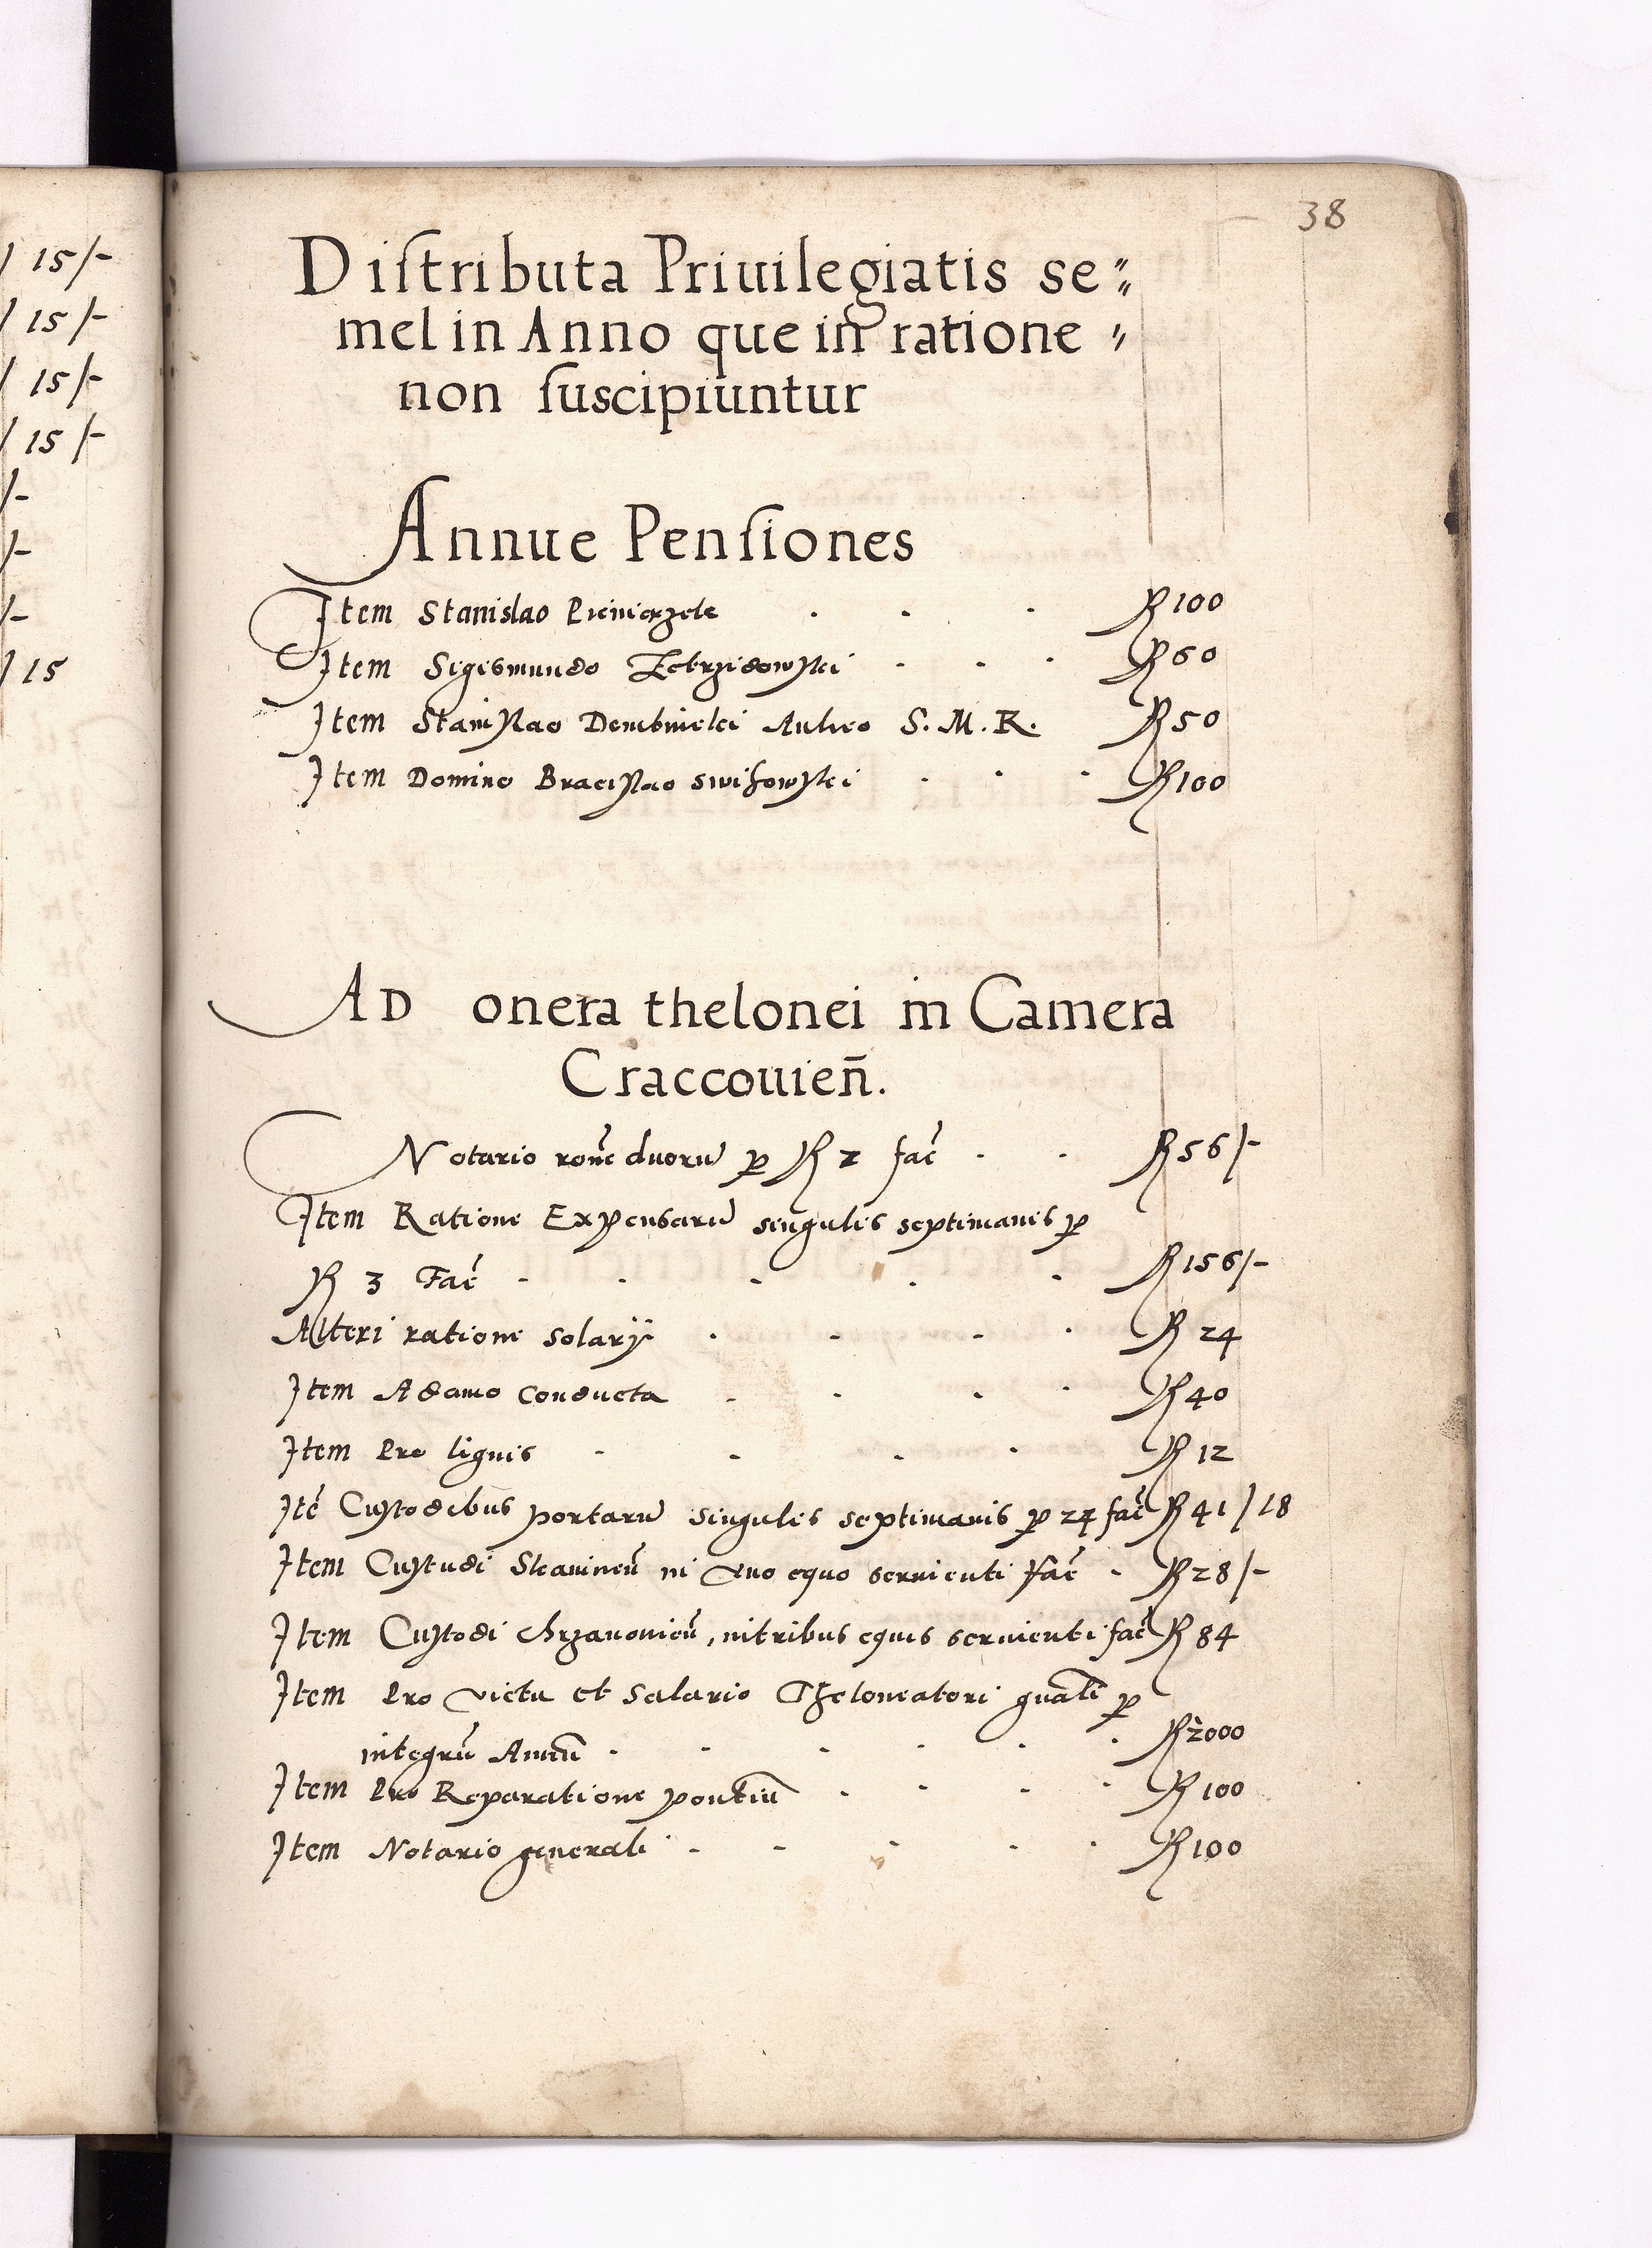 15/-
15/-
15/-
15/-
/-
/-
/-
/15
38
Diſtributa Priuilegiatis se〃
mel in Anno que in ratione 〃
non ſuscipiuntur
Annue Penſiones
Item Stanislao . . . R 100
Item Sigismundo . . . R 60
Item Stanislao Dembinski Aulico S. M. R. R 50
Item Domino Braciſlao . . . R 100
AD onera thelonei in Camera
Craccouien̄.
Notario ron̄e duorū ꝑ R 2 fac̄ . . R 56/-
Item Ratione Expensarū singulis septimanis ꝑ
R 3 Fac̄ . . . . . R 156/-
Alteri ratione solarÿ . . . . R 24
Item Adamo Conducta . . . . R 40
Item Pro lignis . . . . R 12
Itē Cuſtodibus portarū singulis septimanis ꝑ 24 fac̄ R 41/18
Item Cuſtodi in vno equo seruienti Fac̄ . R 28/-
Item Cuſtodi Chrzanouien̄, in tribus equis seruienti fac̄ R 84
Item Pro victu et Salario Theloneatori ꝑ
integrū Annū . . . . . . R 2000
Item Pro Reparatione pontiū . . . . R 100
Item Notario generali . . . . . R 100